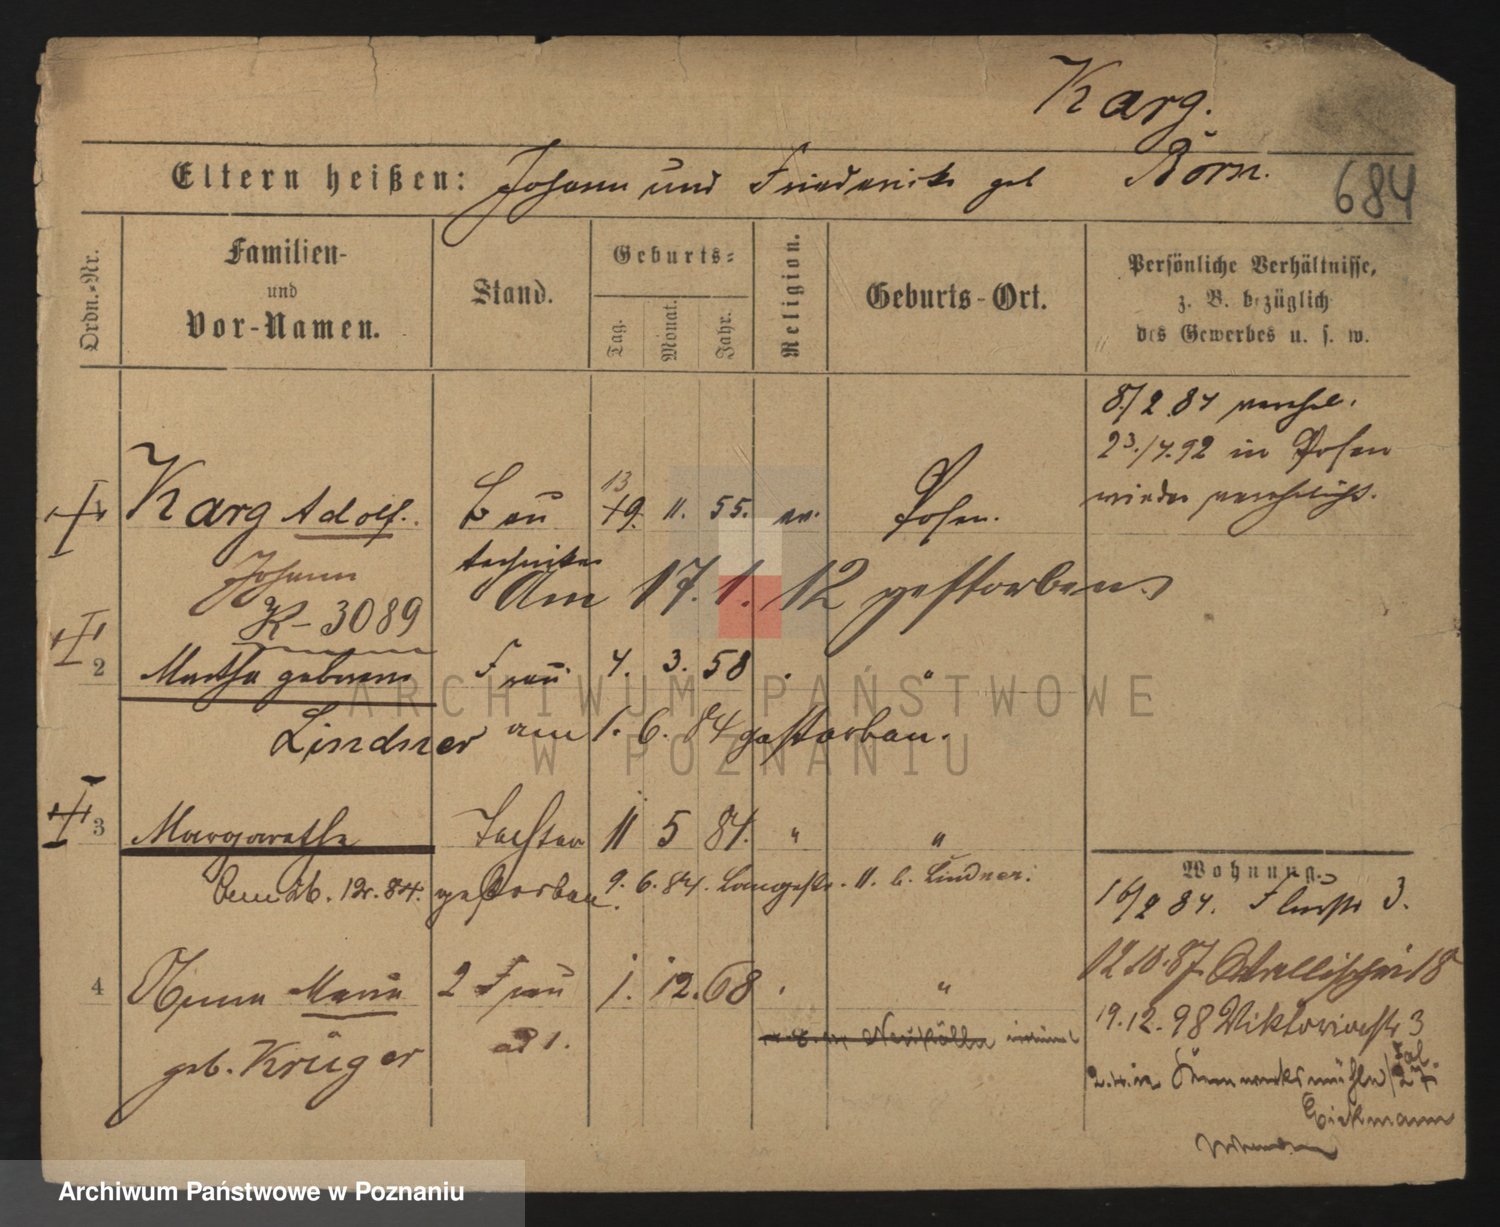 Karg.
Eltern heißen: Johann und Friederike geb Born.
684
Ordn.-Nr.
Familien-
und
Vor-Namen.
Stand.
Geburts-
Tag.
Monat.
Jahr.
Religion.
Geburts-Ort.
Persönliche Verhältnisse,
z. B. bezüglich
des Gewerbes u. s. w.
8/2 84 verehel.
23./4.92 in Posen
wieder verehelicht.
13
Karg Adolf. Bau 19. 11. 55. ev. Posen.
Johann techniker
Am 17. 1. 12 gestorben.
K-3089
2 Martha geborene Frau 4. 3. 58 "
Lindner am 1. 6. 84 gestorben.
3 Margarethe Tochter 11 5 84. " "
26. 12. 84. gestorben. 9. 6. 84. Langestr. 11. b. Lindner.
4 Anna Maria 2 Frau 1. 12. 68 "
geb. Krüger ad 1.
Wohnung.
16/2 84. 3.
12.10.87 Wallischei 18
19.12.98 Viktoriastr 3
27
ARCHIWUM PAŃSTWOWE
W POZNANIU
Archiwum Państwowe w Poznaniu